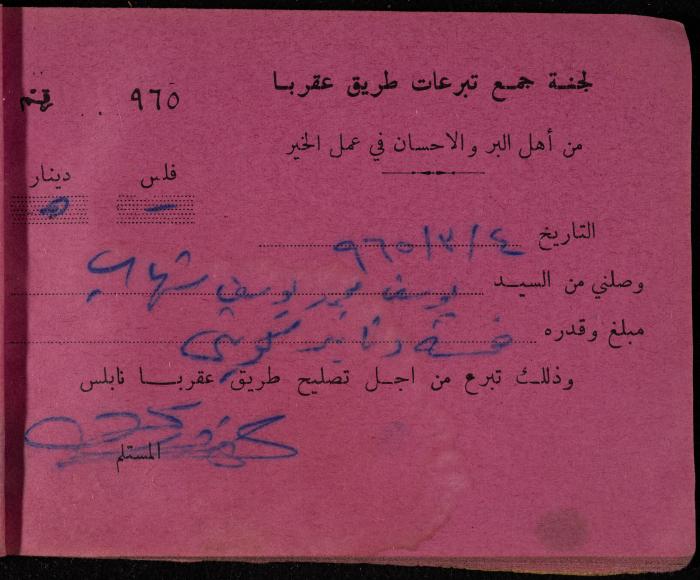 لجنة جمع تبرعات طريق عقربا
٩٦٥
من أهل البر والاحسان في عمل الخير
فلس دينار
— ٥
التاريخ ٤/٣/٩٦٥
وصلني من السيد يوسف يوسف
مبلغ وقدره خمسة دنانير
وذلك تبرع من اجل تصليح طريق عقربا نابلس
المستلم